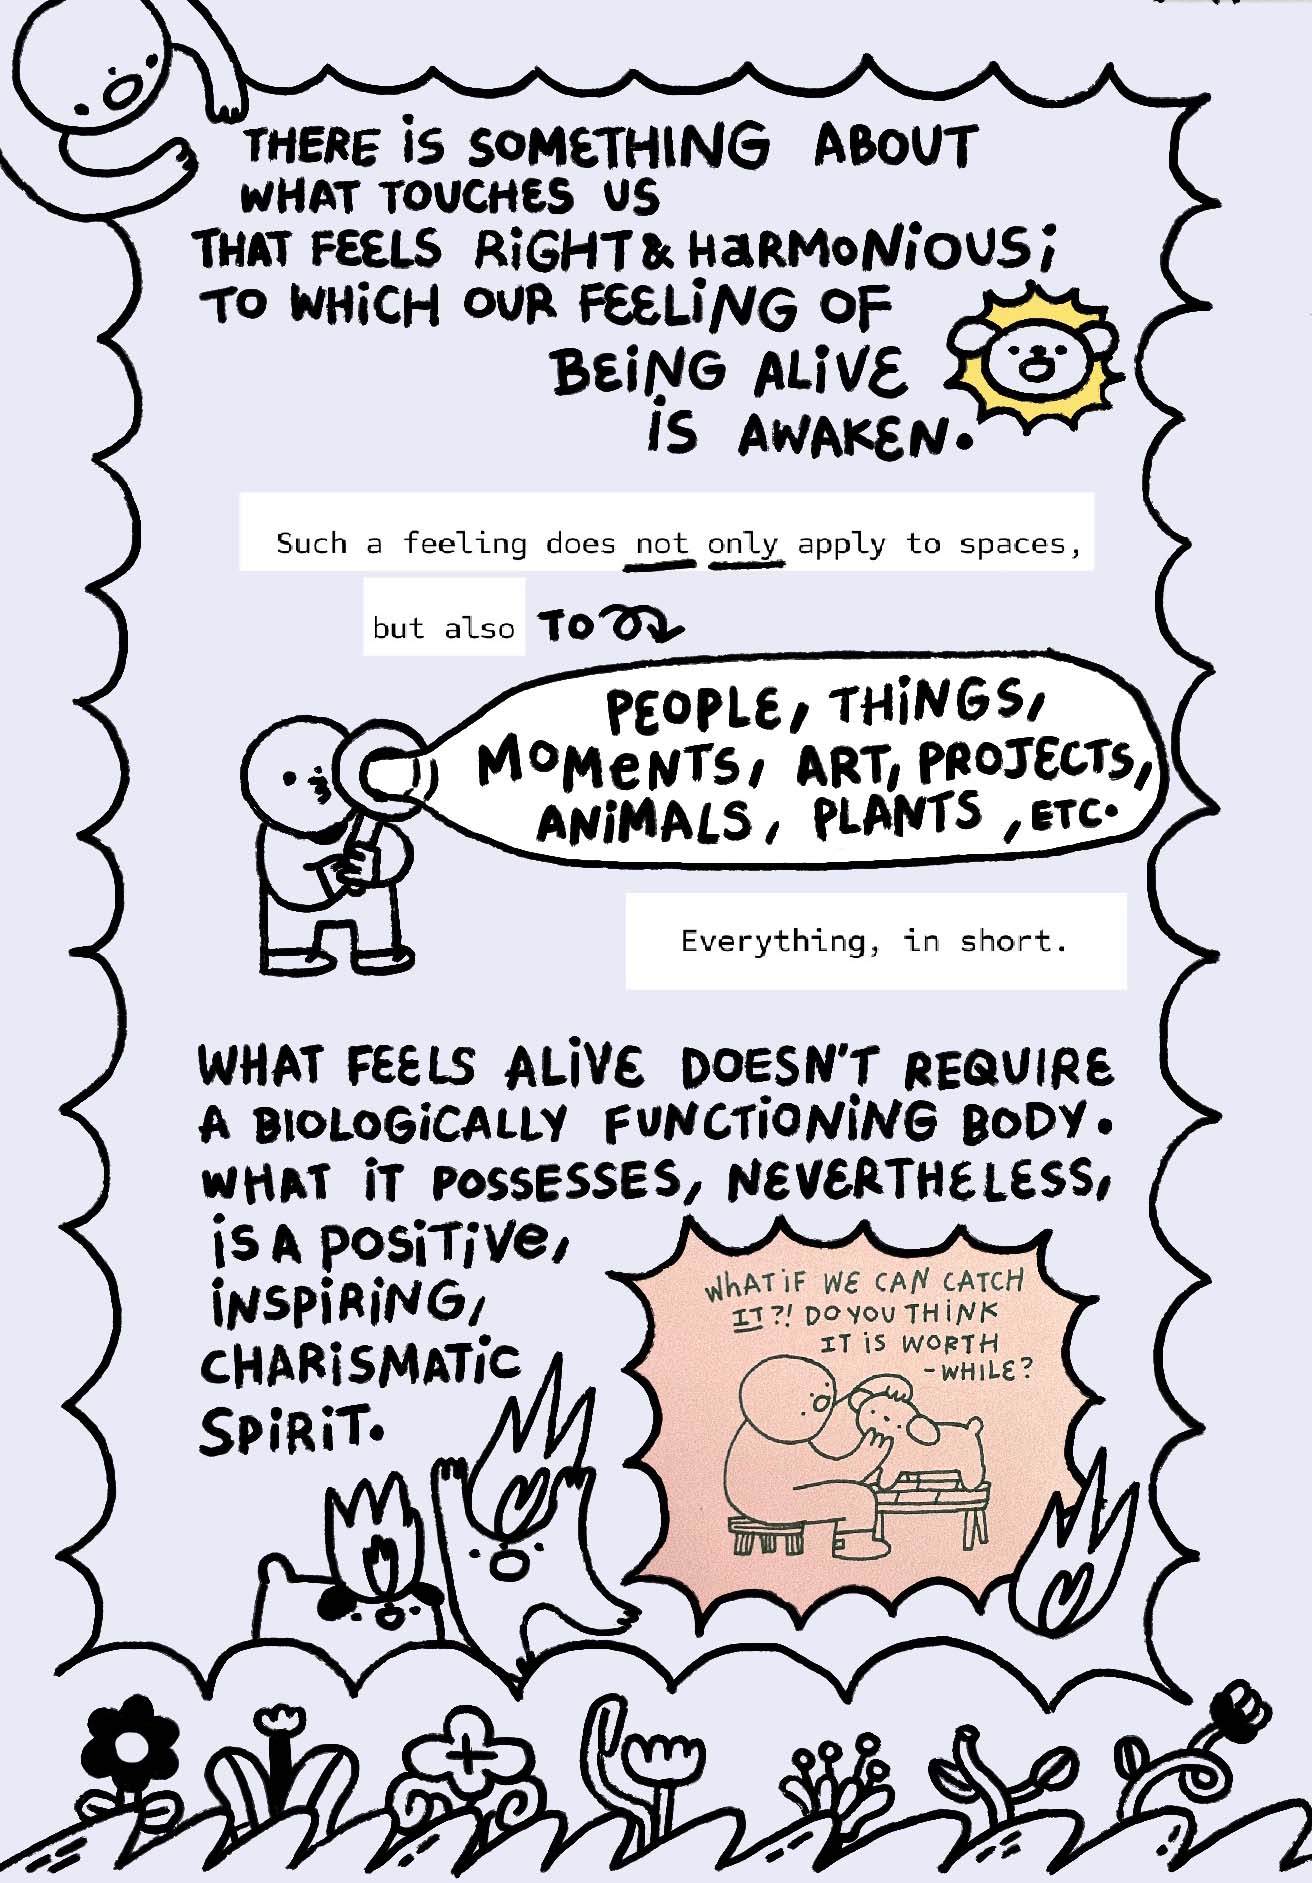 THERE IS SOMETHING ABOUT
WHAT TOUCHES US
THAT FEELS RIGHT & HARMONIOUS;
TO WHICH OUR FEELING OF
BEING ALIVE
IS AWAKEN.
Such a feeling does not only apply to spaces,
but also TO
PEOPLE, THINGS,
MOMENTS, ART, PROJECTS,
ANIMALS, PLANTS, ETC.
Everything, in short.
WHAT FEELS ALIVE DOESN'T REQUIRE
A BIOLOGICALLY FUNCTIONING BODY.
WHAT IT POSSESSES, NEVERTHELESS,
IS A POSITIVE,
INSPIRING,
CHARISMATIC
SPIRIT.
WHAT IF WE CAN CATCH
IT?! DO YOU THINK
IT IS WORTH
-WHILE?